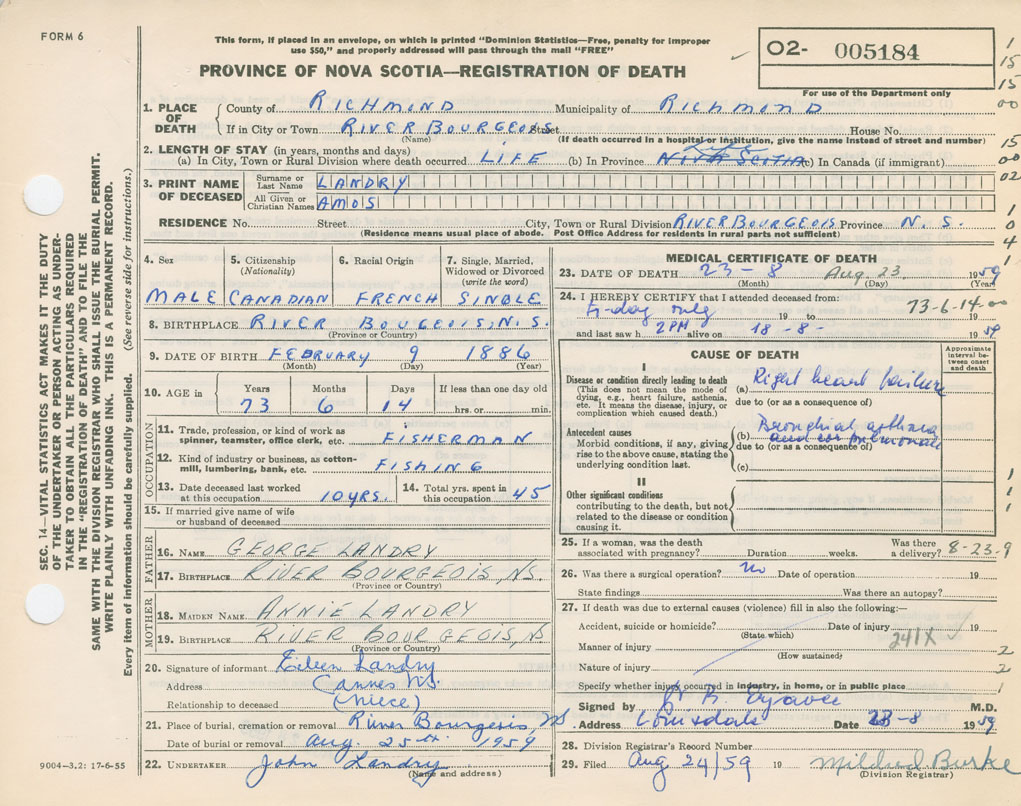 FORM 6
This form, if placed in an envelope, on which is printed "Dominion Statistics—Free, penalty for improper
use $50," and properly addressed will pass through the mail "FREE"
PROVINCE OF NOVA SCOTIA—REGISTRATION OF DEATH
O2- 005184
For use of the Department only
1. PLACE OF DEATH
County of RICHMOND Municipality of RICHMOND
If in City or Town RIVER BOURGEOIS Street House No.
(Name) (If death occurred in a hospital or institution, give the name instead of street and number)
2. LENGTH OF STAY (in years, months and days)
(a) In City, Town or Rural Division where death occurred LIFE (b) In Province Life NOVA SCOTIA (c) In Canada (if immigrant)
3. PRINT NAME OF DECEASED
Surname or Last Name LANDRY
All Given or Christian Names AMOS
RESIDENCE No. Street City, Town or Rural Division RIVER BOURGEOIS Province N. S.
(Residence means usual place of abode. Post Office Address for residents in rural parts not sufficient)
4. Sex MALE
5. Citizenship (Nationality) CANADIAN
6. Racial Origin FRENCH
7. Single, Married, Widowed or Divorced (write the word) SINGLE
8. BIRTHPLACE RIVER BOUGEOIS, N.S.
(Province or Country)
9. DATE OF BIRTH FEBRUARY 9 1886
(Month) (Day) (Year)
10. AGE in Years Months Days If less than one day old
73 6 14 hrs. or min.
OCCUPATION
11. Trade, profession, or kind of work as spinner, teamster, office clerk, etc. FISHERMAN
12. Kind of industry or business, as cotton-mill, lumbering, bank, etc. FISHING
13. Date deceased last worked at this occupation 10 YRS.
14. Total yrs. spent in this occupation 45
15. If married give name of wife or husband of deceased
FATHER
16. NAME GEORGE LANDRY
17. BIRTHPLACE RIVER BOURGEOIS, NS.
(Province or Country)
MOTHER
18. MAIDEN NAME ANNIE LANDRY
19. BIRTHPLACE RIVER BOURGEOIS, NS
(Province or Country)
20. Signature of informant Eileen Landry
Address Cannes NS.
Relationship to deceased (niece)
21. Place of burial, cremation or removal River Bourgeois NS
Date of burial or removal Aug. 25th 1959
22. UNDERTAKER John Landry
(Name and address)
9004—3.2: 17-6-55
SEC. 14—VITAL STATISTICS ACT MAKES IT THE DUTY
OF THE UNDERTAKER OR PERSON ACTING AS UNDER-
TAKER TO OBTAIN ALL THE PARTICULARS REQUIRED
IN THE "REGISTRATION OF DEATH" AND TO FILE THE
SAME WITH THE DIVISION REGISTRAR WHO SHALL ISSUE THE BURIAL PERMIT.
WRITE PLAINLY WITH UNFADING INK. THIS IS A PERMANENT RECORD.
Every item of information should be carefully supplied. (See reverse side for instructions.)
MEDICAL CERTIFICATE OF DEATH
23. DATE OF DEATH 23 - 8 Aug. 23 1959
(Month) (Day) (Year)
24. I HEREBY CERTIFY that I attended deceased from: 73-6-14-00
to-day only 19 to 19
and last saw h 2 PM alive on 18 - 8 - 1959
CAUSE OF DEATH
Approximate interval between onset and death
I
Disease or condition directly leading to death
(This does not mean the mode of dying, e.g., heart failure, asthenia, etc. It means the disease, injury, or complication which caused death.)
(a) Right heart failure
due to (or as a consequence of)
Antecedent causes
Morbid conditions, if any, giving rise to the above cause, stating the underlying condition last.
(b) Bronchial asthma
and cor pulmonale
due to (or as a consequence of)
(c)
II
Other significant conditions
contributing to the death, but not related to the disease or condition causing it.
25. If a woman, was the death associated with pregnancy? Duration weeks. Was there a delivery? 8-23-9
26. Was there a surgical operation? no Date of operation 19
State findings Was there an autopsy?
27. If death was due to external causes (violence) fill in also the following:—
Accident, suicide or homicide? Date of injury 19
(State which)
241X
Manner of injury
(How sustained)
Nature of injury
Specify whether injury occurred in industry, in home, or in public place
Signed by M.D.
Address Louisdale Date 23-8 1959
28. Division Registrar's Record Number
29. Filed Aug 24/59 19 Mildred Burke
(Division Registrar)
1
15
15
00
15
00
02
1
0
4
1
1
1
1
2
2
1